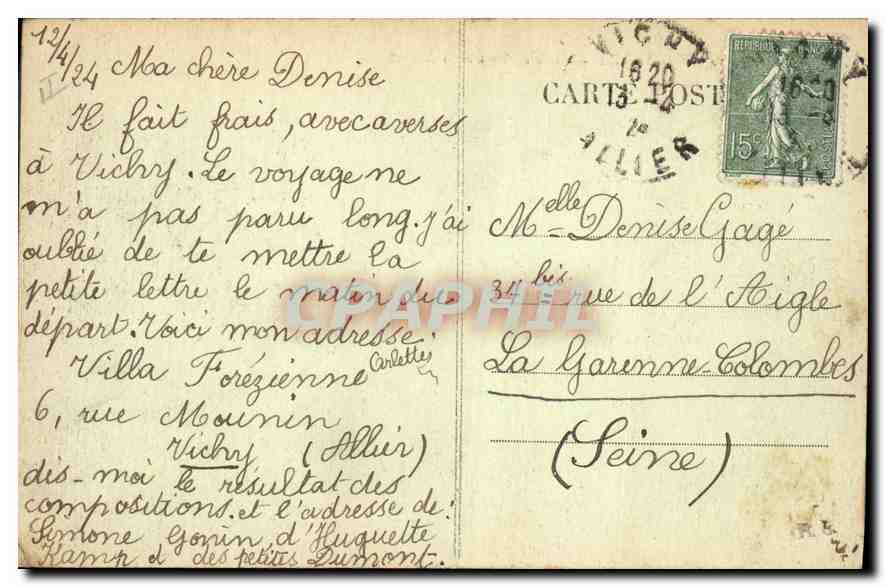 12/4/24
II
Ma chère Denise
Il fait frais, avec averses
à Vichy. Le voyage ne
m'a pas paru long. J'ai
oublié de te mettre la
petite lettre le matin du
départ. Voici mon adresse:
Villa Forézienne
Carlettes
6, rue Mounin
Vichy (Allier)
dis-moi le résultat des
compositions. et l'adresse de:
Simone Gonin, d'Huguette
Kamp et des petites Dumont.
CARTE POST
VICHY
16 20
13 -4
ALLIER
REPUBLIQUE FRANÇAISE
15c
POSTES
Melle Denise Gagé
34 bis rue de l'Aigle
La Garenne-Colombes
(Seine)
CPAPHIL